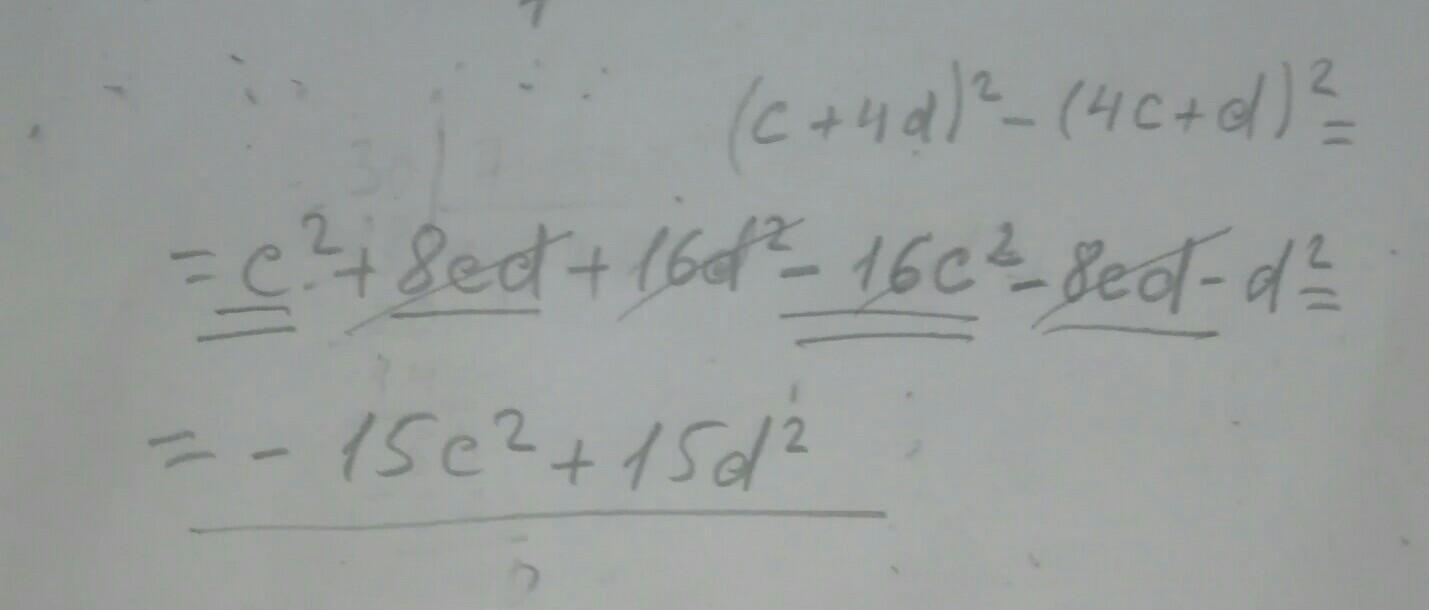 (c+4d)²-(4c+d)²=
=c²+8cd+16d²-16c²-8cd-d²=
=-15c²+15d²